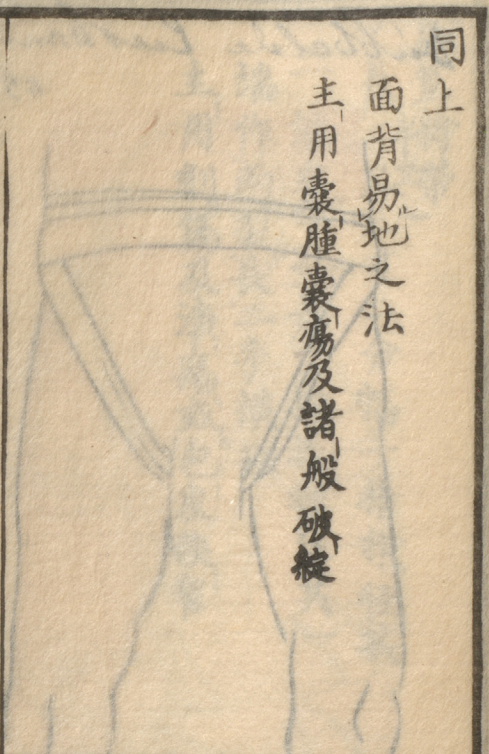 同上
面背易地之法
主用嚢腫嚢瘍及諸般破綻